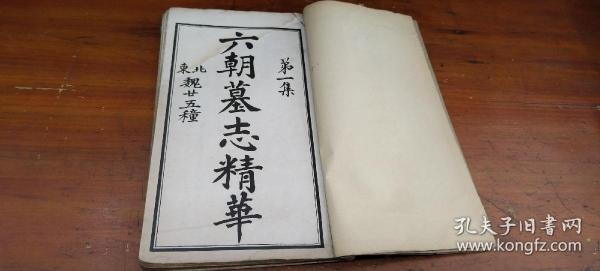 第一集
六朝墓志精華
北東
魏廿五種
孔夫子旧书网
www.kongfz.com